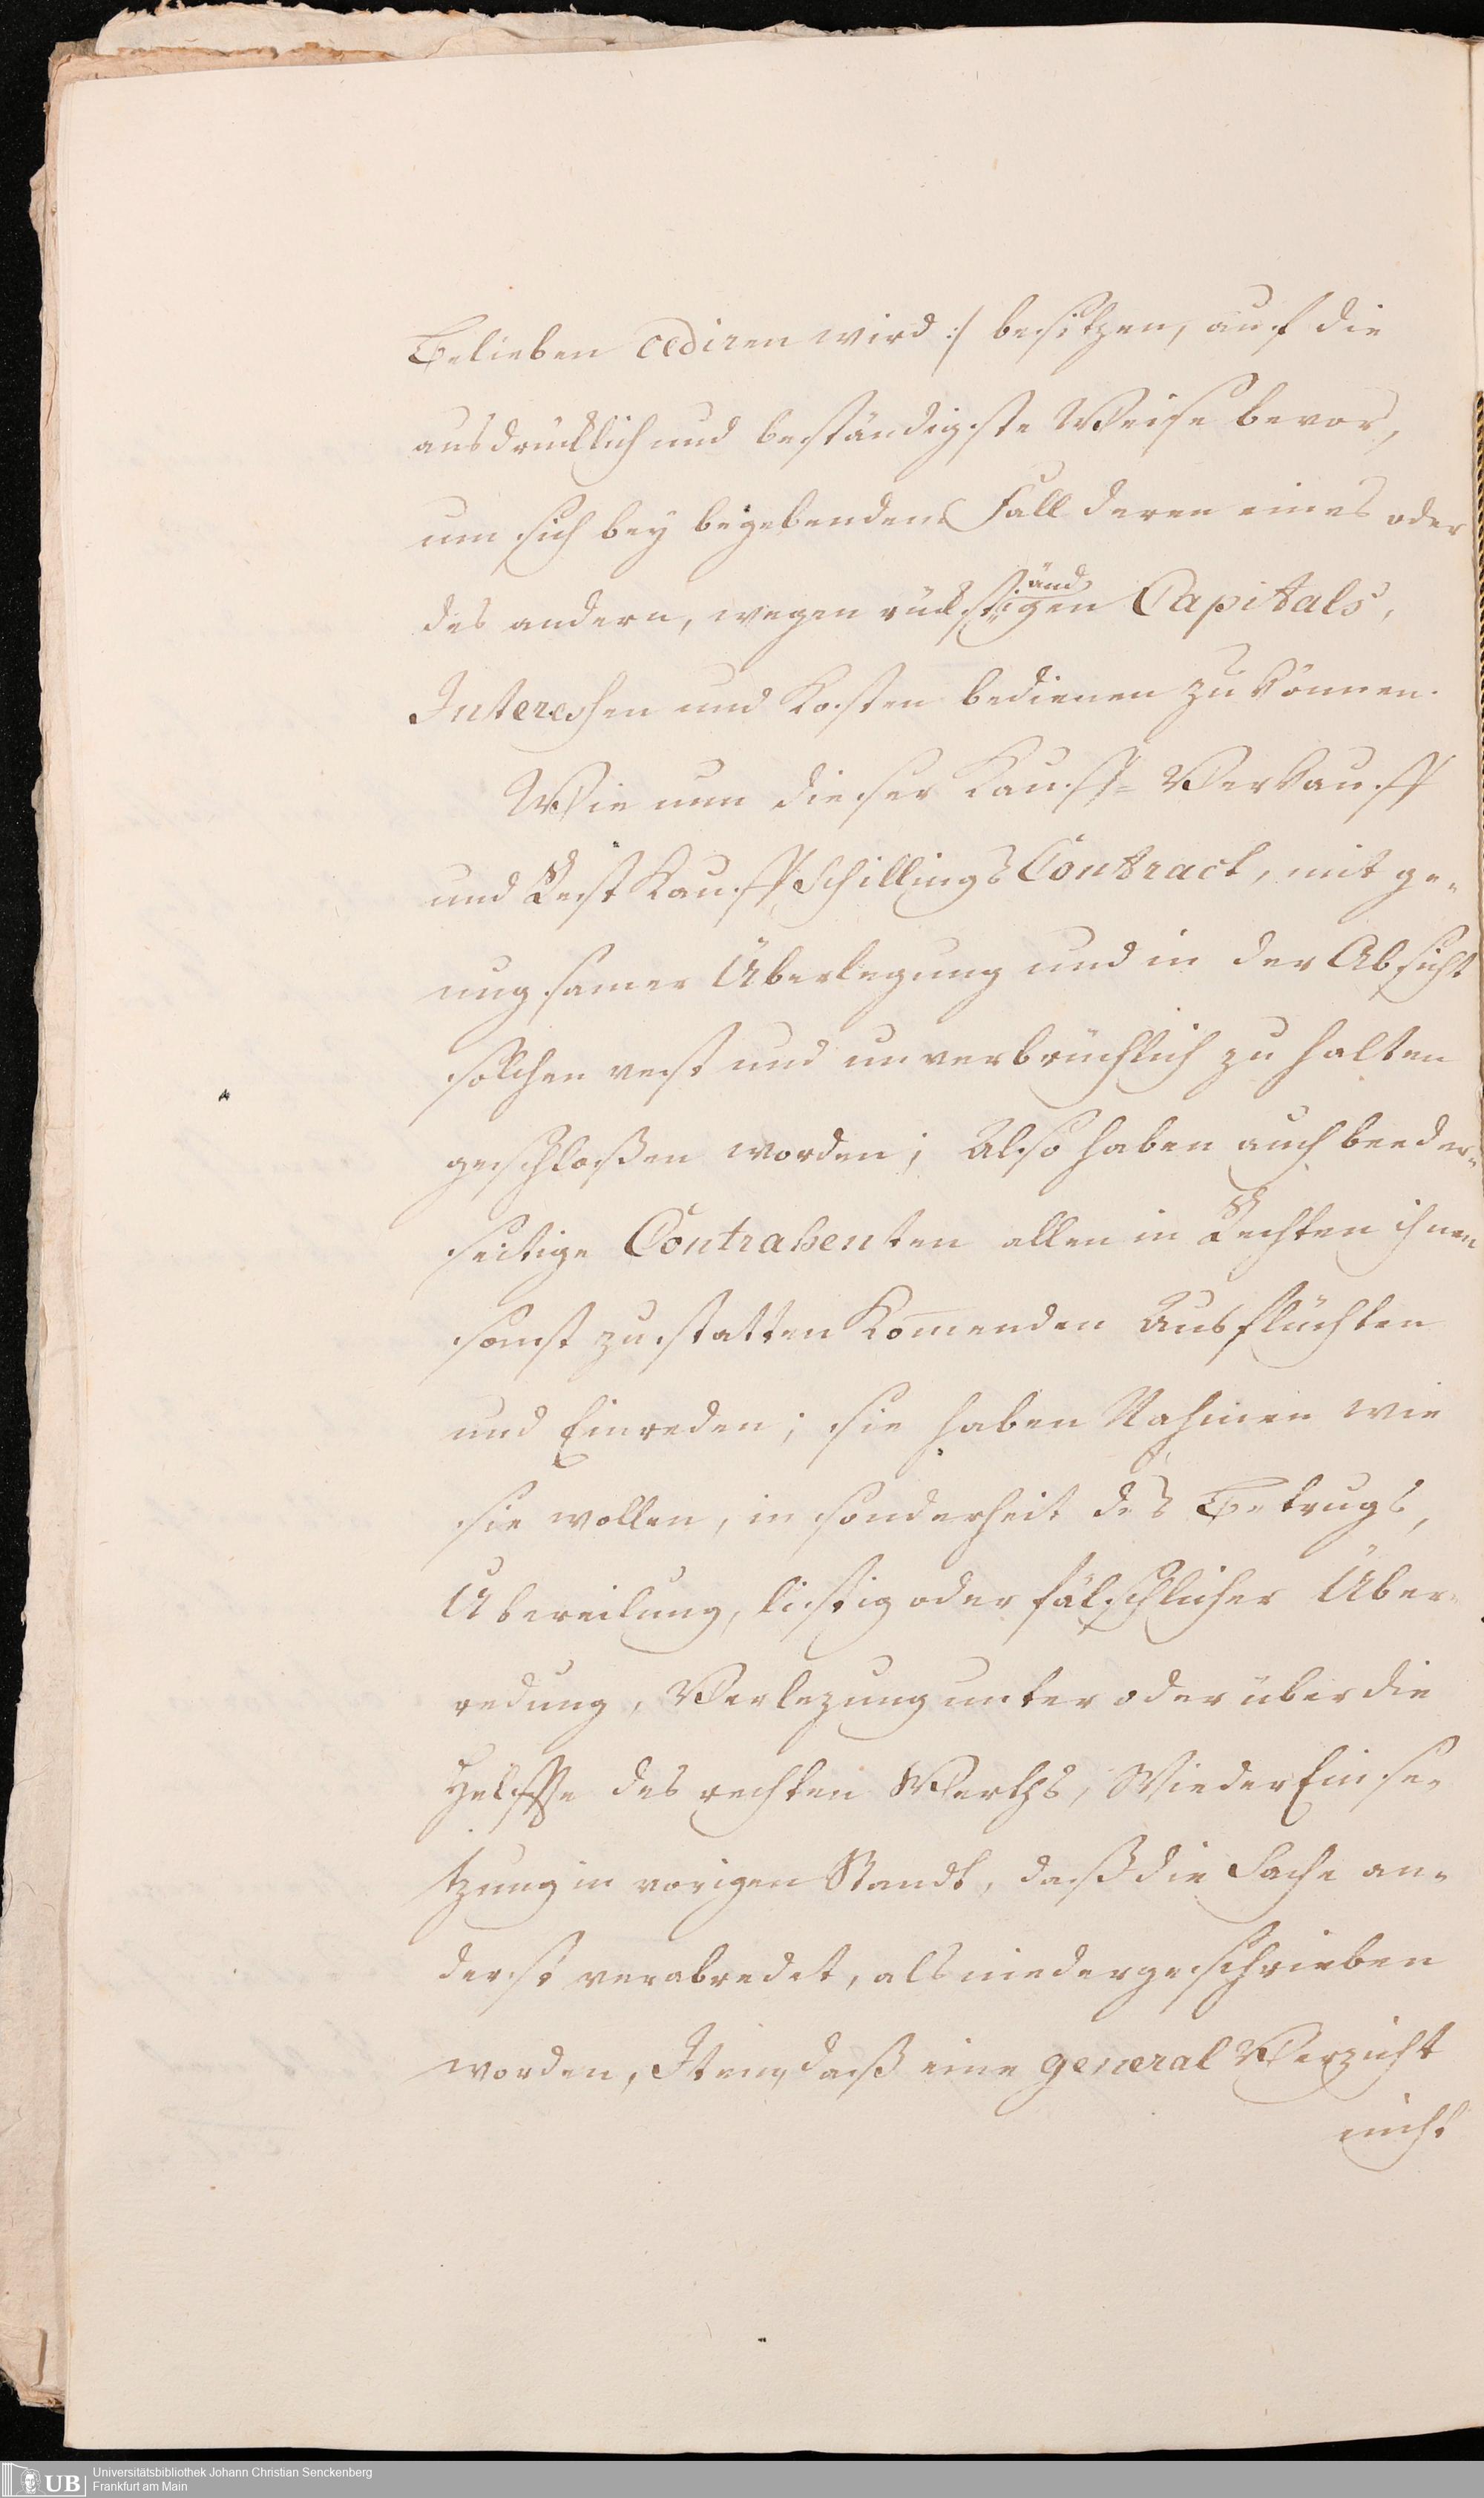 Belieben cediren wird :/ besitzen, auf die
ausdrücklich und beständigste Weise bevor,
um sich bey begebendem Fall deren eines oder
des andern, wegen rückständigen Capitals,
Interessen und Kosten bedienen zu können.
Wie nun dieser Kauff- Verkauff
und Rest Kauff Schillings Contract, mit ge-
nugsamer Überlegung und in der Absicht
solchen vest und unverbrüchlich zu halten
geschloßen worden; Also haben auch beeder-
seitige Contrahenten allen in Rechten ihnen
sonst zustatten Komenden Ausflüchten
und Einreden; sie haben Nahmen wie
sie wollen, in sonderheit des Betrugs,
Ubereilung, listig oder fälschlicher Über-
redung, Verlezung unter oder über die
Helffte des rechten Werths, Wieder Einse-
tzung in vorigen Standt, daß die Sache an-
derst verabredet, als niedergeschrieben
worden, Item, daß eine general Verzicht
nicht
UB
Universitätsbibliothek Johann Christian Senckenberg
Frankfurt am Main